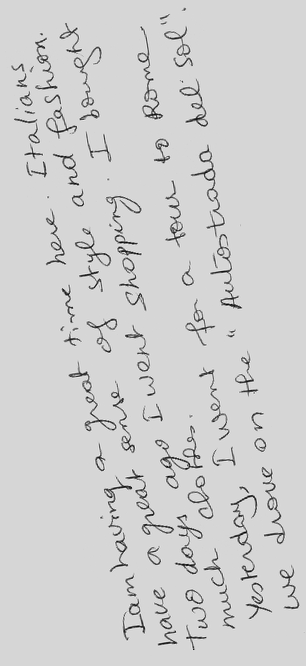 I am having a great time here. Italians
have a great sense of style and fashion.
Two days ago I went shopping. I bought
much clothes.
Yesterday, I went for a tour to Rome
we drove on the "Autostrada del Sol".